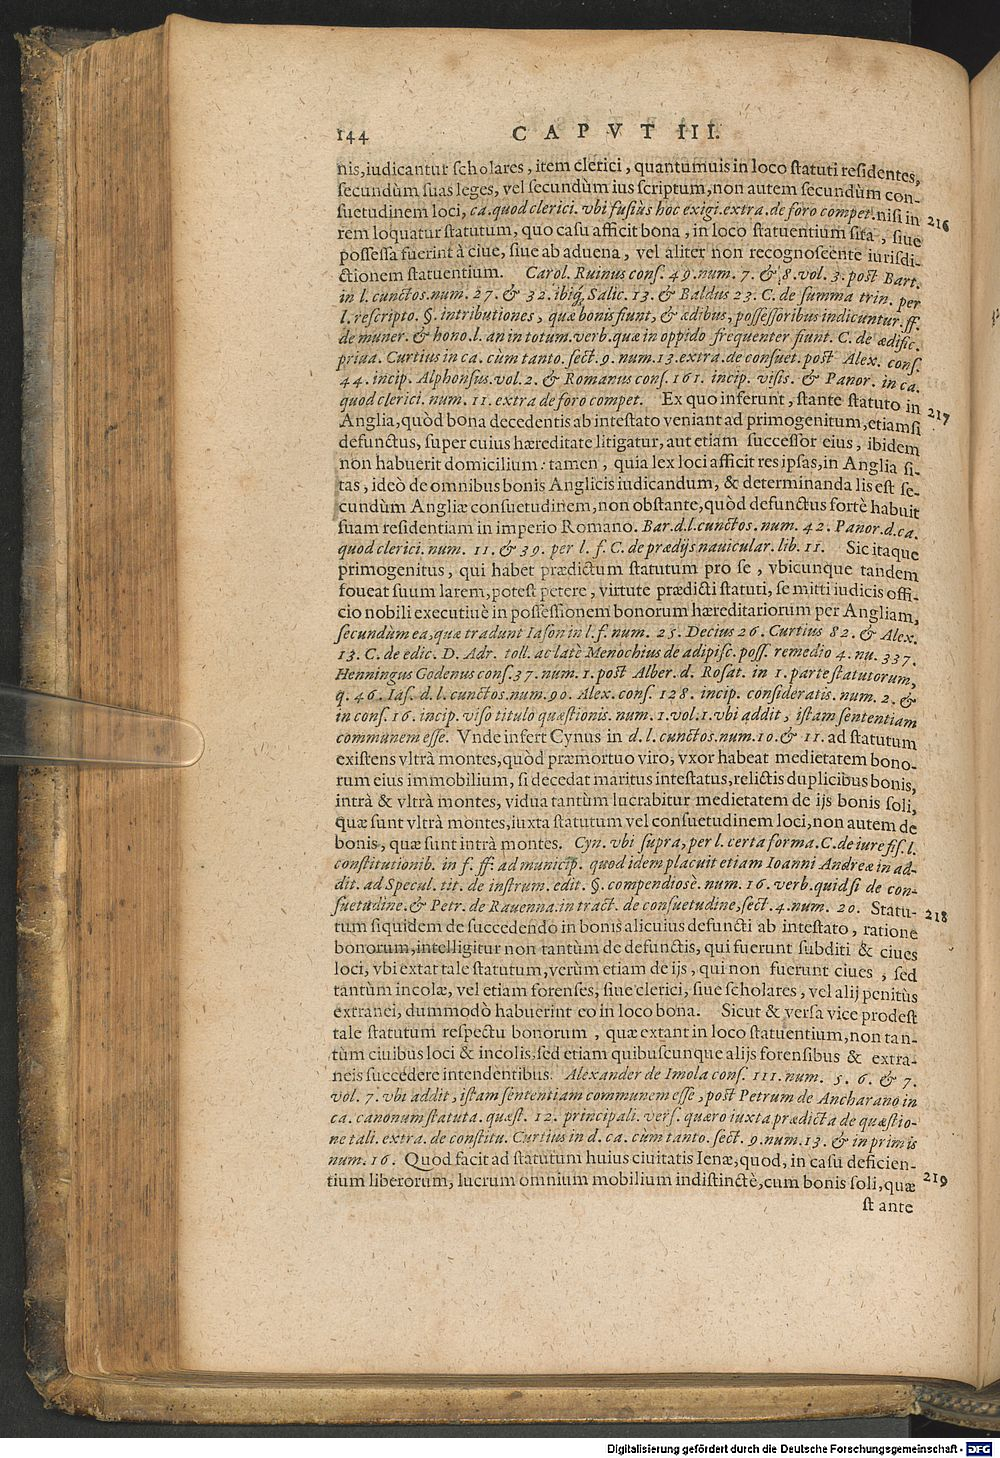 144 CAPVT III.
nis, iudicantur scholares, item clerici, quantumuis in loco statuti residentes,
secundùm suas leges, vel secundùm ius scriptum, non autem secundùm con-
suetudinem loci, ca. quod clerici. vbi fusiùs hoc exigi. extra. de foro compet. nisi in 216
rem loquatur statutum, quo casu afficit bona, in loco statuentium sita, siue
possessa fuerint à ciue, siue ab aduena, vel aliter non recognoscente iurisdi-
ctionem statuentium. Carol. Ruinus cons. 49. num. 7. & 8. vol. 3. post Bart.
in l. cunctos. num. 27. & 32. ibiq; Salic. 13. & Baldus 23. C. de summa trin. per
l. rescripto. §. in tributiones, quæ bonis fiunt, & ædibus, possessoribus indicuntur. ff.
de muner. & hono. l. an in totum. verb. quæ in oppido frequenter fiunt. C. de ædific.
priua. Curtius in ca. cùm tanto. sect. 9. num. 13. extra. de consuet. post Alex. cons.
44. incip. Alphonsus. vol. 2. & Romanus cons. 161. incip. visis. & Panor. in ca.
quod clerici. num. 11. extra de foro compet. Ex quo inferunt, stante statuto in 217
Anglia, quòd bona decedentis ab intestato veniant ad primogenitum, etiamsi
defunctus, super cuius hæreditate litigatur, aut etiam successor eius, ibidem
non habuerit domicilium: tamen, quia lex loci afficit res ipsas, in Anglia si-
tas, ideò de omnibus bonis Anglicis iudicandum, & determinanda lis est se-
cundùm Angliæ consuetudinem, non obstante, quòd defunctus fortè habuit
suam residentiam in imperio Romano. Bar. d. l. cunctos. num. 42. Panor. d. ca.
quod clerici. num. 11. & 39. per l. f. C. de prædijs nauicular. lib. 11. Sic itaque
primogenitus, qui habet prædictum statutum pro se, vbicunque tandem
foueat suum larem, potest petere, virtute prædicti statuti, se mitti iudicis offi-
cio nobili executiuè in possessionem bonorum hæreditariorum per Angliam,
secundùm ea, quæ tradunt Iason in l. f. num. 25. Decius 26. Curtius 82. & Alex.
13. C. de edic. D. Adr. toll. ac latè Menochius de adipisc. poss. remedio 4. nu. 337.
Henningus Godenus cons. 37. num. 1. post Alber. d. Rosat. in 1. parte statutorum,
q. 46. Ias. d. l. cunctos. num. 90. Alex. cons. 128. incip. consideratis. num. 2. &
in cons. 16. incip. viso titulo quæstionis. num. 1. vol. 1. vbi addit, istam sententiam
communem esse. Vnde infert Cynus in d. l. cunctos. num. 10. & 11. ad statutum
existens vltrà montes, quòd præmortuo viro, vxor habeat medietatem bono-
rum eius immobilium, si decedat maritus intestatus, relictis duplicibus bonis,
intrà & vltrà montes, vidua tantùm lucrabitur medietatem de ijs bonis soli,
quæ sunt vltrà montes, iuxta statutum vel consuetudinem loci, non autem de
bonis, quæ sunt intrà montes. Cyn. vbi supra, per l. certa forma. C. de iure fis. l.
constitutionib. in f. ff. ad municip. quod idem placuit etiam Ioanni Andreæ in ad-
dit. ad Specul. tit. de instrum. edit. §. compendiosè. num. 16. verb. quid si de con-
suetudine. & Petr. de Rauenna. in tract. de consuetudine, sect. 4. num. 20. Statu- 218
tum siquidem de succedendo in bonis alicuius defuncti ab intestato, ratione
bonorum, intelligitur non tantùm de defunctis, qui fuerunt subditi & ciues
loci, vbi extat tale statutum, verùm etiam de ijs, qui non fuerunt ciues, sed
tantùm incolæ, vel etiam forenses, siue clerici, siue scholares, vel alij penitùs
extranei, dummodò habuerint eo in loco bona. Sicut & versa vice prodest
tale statutum respectu bonorum, quæ extant in loco statuentium, non tan-
tùm ciuibus loci & incolis, sed etiam quibuscunque alijs forensibus & extra-
neis succedere intendentibus. Alexander de Imola cons. 111. num. 5. 6. & 7.
vol. 7. vbi addit, istam sententiam communem esse, post Petrum de Ancharano in
ca. canonum statuta. quæst. 12. principali. vers. quæro iuxta prædicta de quæstio-
ne tali. extra. de constitu. Curtius in d. ca. cùm tanto. sect. 9. num. 13. & in primis
num. 16. Quod facit ad statutum huius ciuitatis Ienæ, quod, in casu deficien-
tium liberorum, lucrum omnium mobilium indistinctè, cum bonis soli, quæ 219
stante
Digitalisierung gefördert durch die Deutsche Forschungsgemeinschaft - DFG